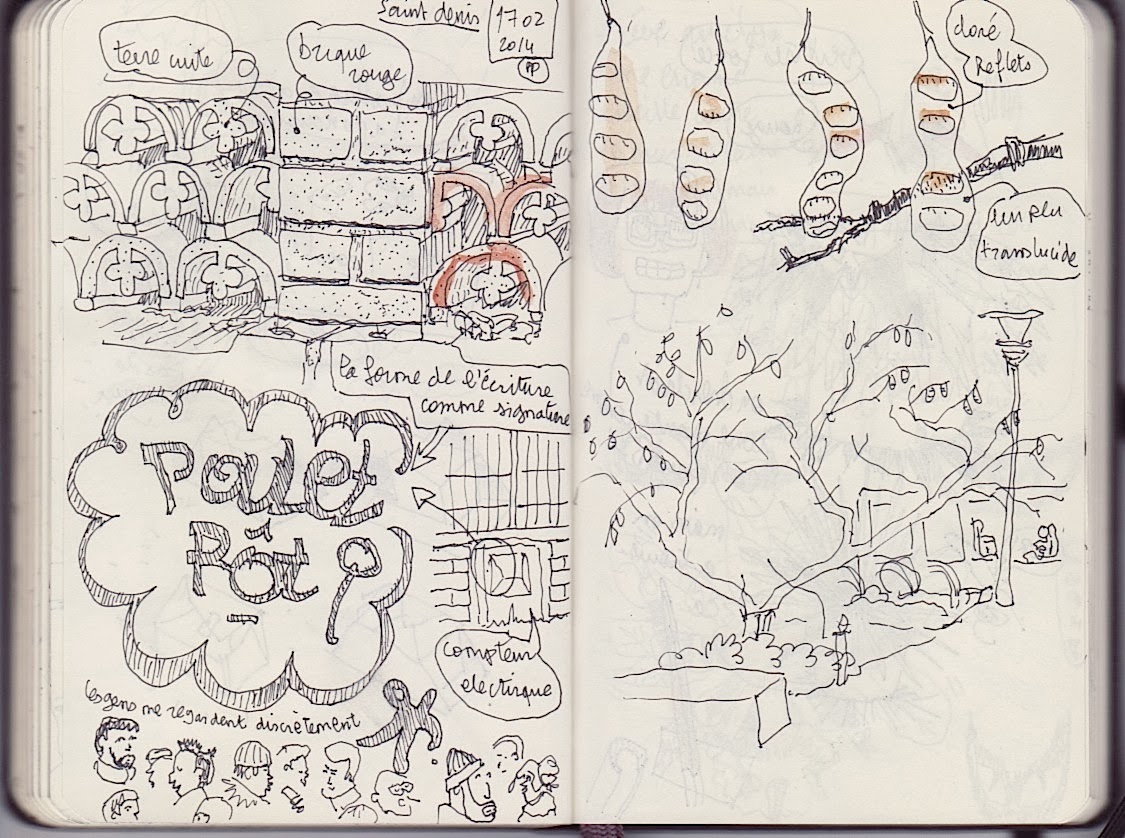 Saint denis
17 02
2014
PP
terre cuite
brique
rouge
la forme de l'écriture
comme signature
Poulet
Rôt
compteur
electrique
les gens me regardent discrètement
doré
Reflets
un peu
translucide